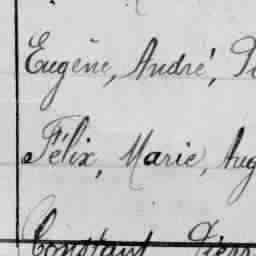 Eugène, André,
Félix, Marie, Aug
Constant